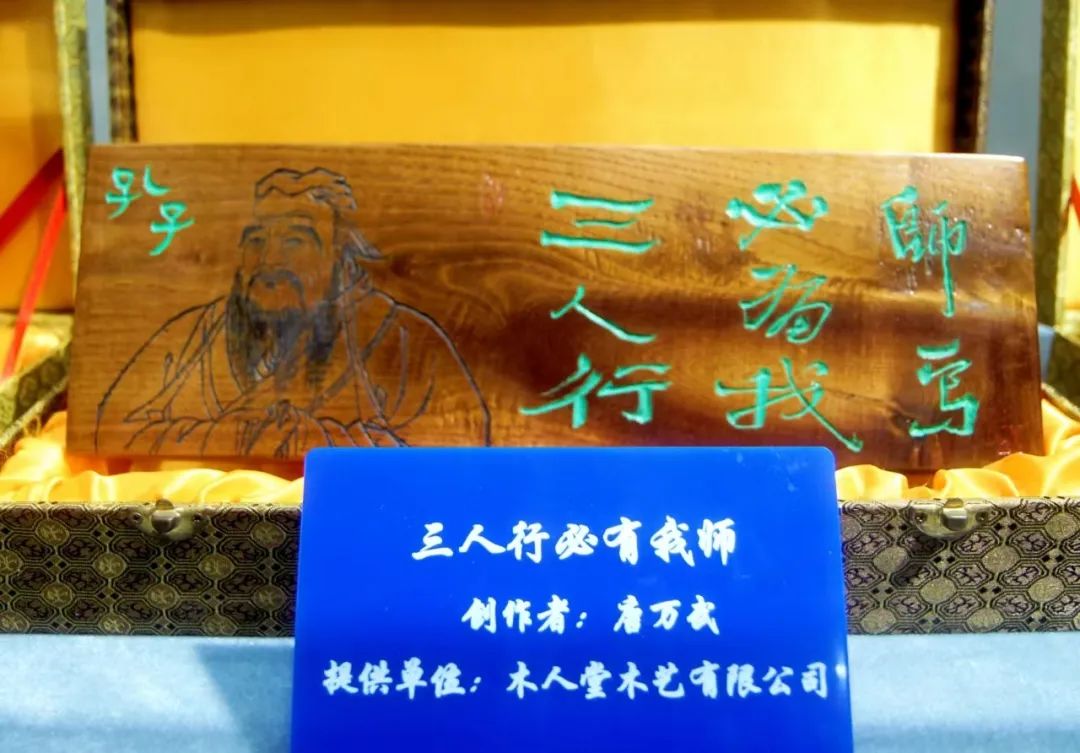 孔子
三人行
必有我
師焉
三人行必有我师
创作者：唐万武
提供单位：木人堂木艺有限公司